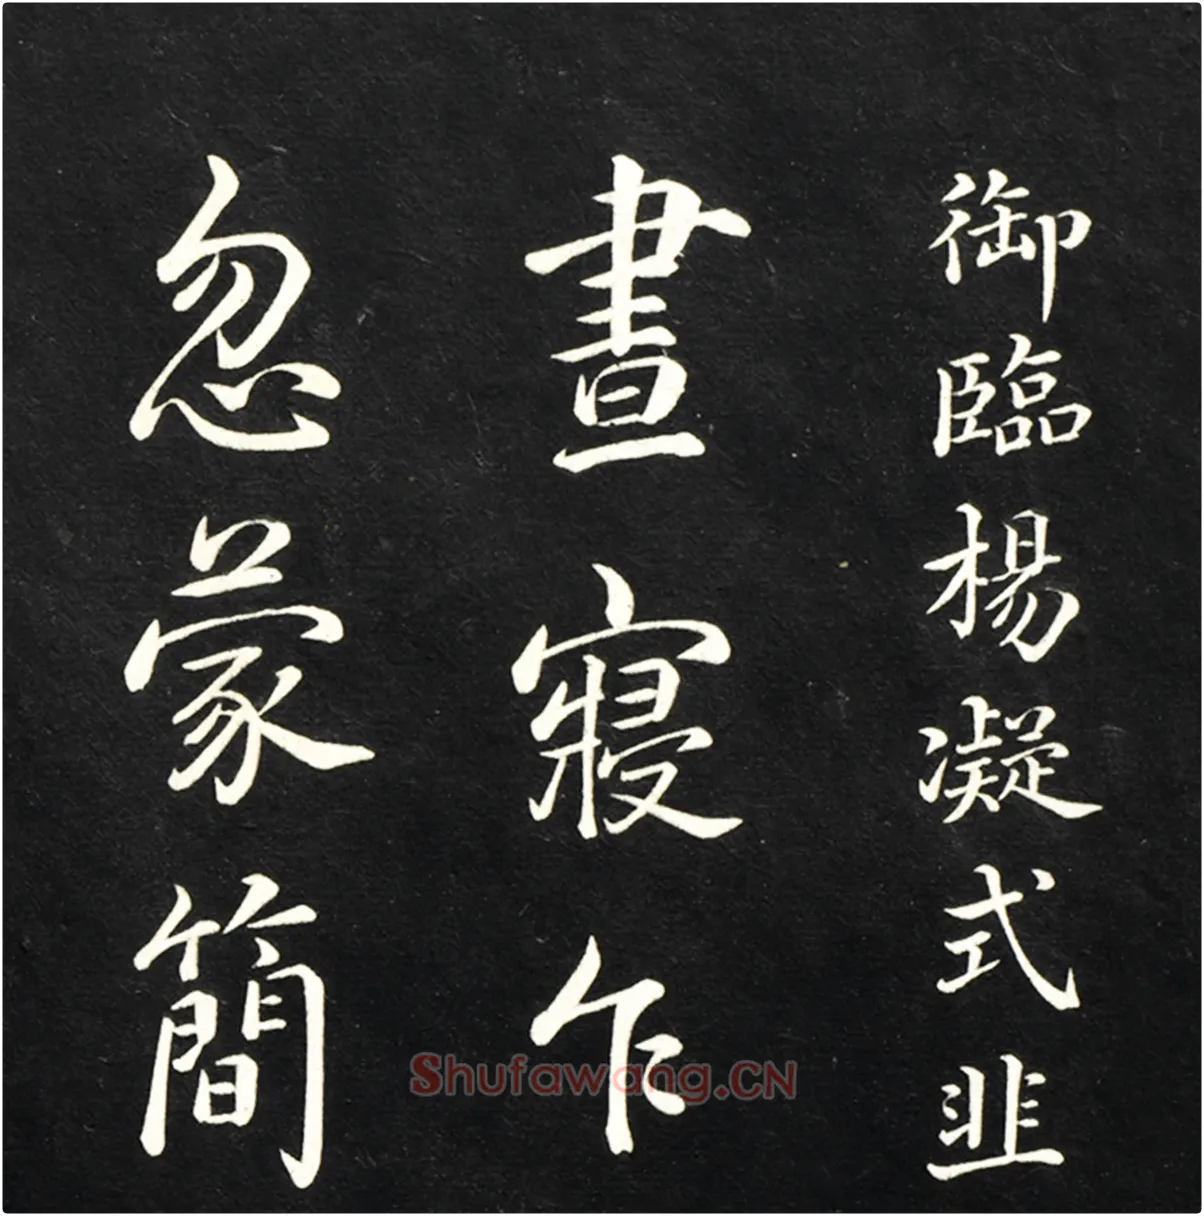 御臨楊凝式韭
晝寢乍
忽蒙簡
Shufawang.CN